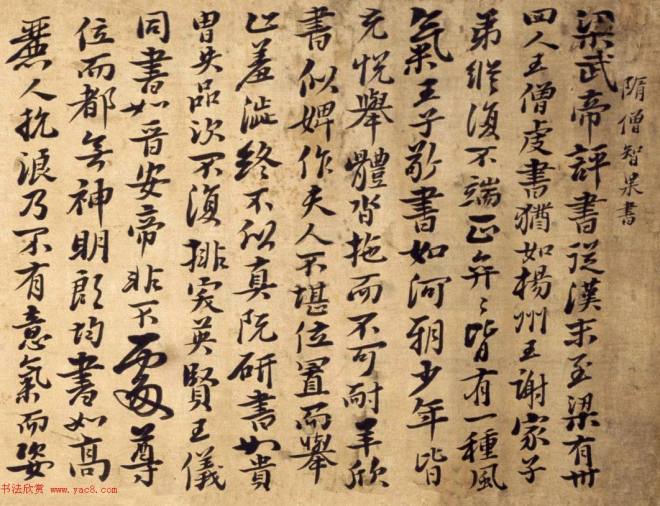 隋僧智果書
梁武帝評書從漢末至梁有卅
四人王僧虔書猶如楊州王謝家子
弟縱復不端正弈弈皆有一種風
氣王子敬書如河朔少年皆
充悅舉體沓拖而不可耐羊欣
書似婢作夫人不堪位置而舉
止羞澁終不似真阮研書如貴
胄失品次不復排突英賢王儀
同書如晉安帝非不處尊
位而都無神明郎均書如高
麗人抗浪乃不有意氣而姿
书法欣赏 www.yac8.com